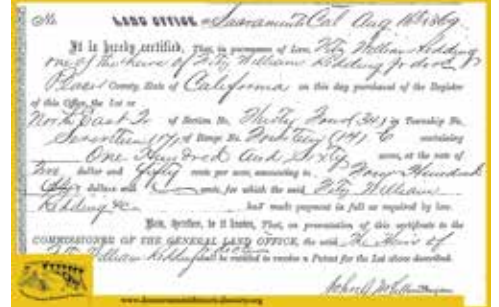 No. LAND OFFICE at Sacramento Cal Aug 1869
It is hereby certified, That, in pursuance of Law, Fitz William Redding
one of the heirs of Fitz William Redding
Placer County, State of California on this day purchased of the Register
of this Office, the Lot or
North East Qr of Section No. Thirty Four (34) in Township No.
Seventeen (17) of Range No. Fourteen (14) E containing
One Hundred and Sixty acres, at the rate of
dollar and Fifty cents per acre, amounting to Four Hundred
dollars and cents, for which the said Fitz William
Redding &c. has made payment in full as required by law.
Now, therefore, be it known, That, on presentation of this certificate to the
COMMISSIONER OF THE GENERAL LAND OFFICE, the said The Heirs of
Fitz William Redding shall be entitled to receive a Patent for the Lot above described.
John